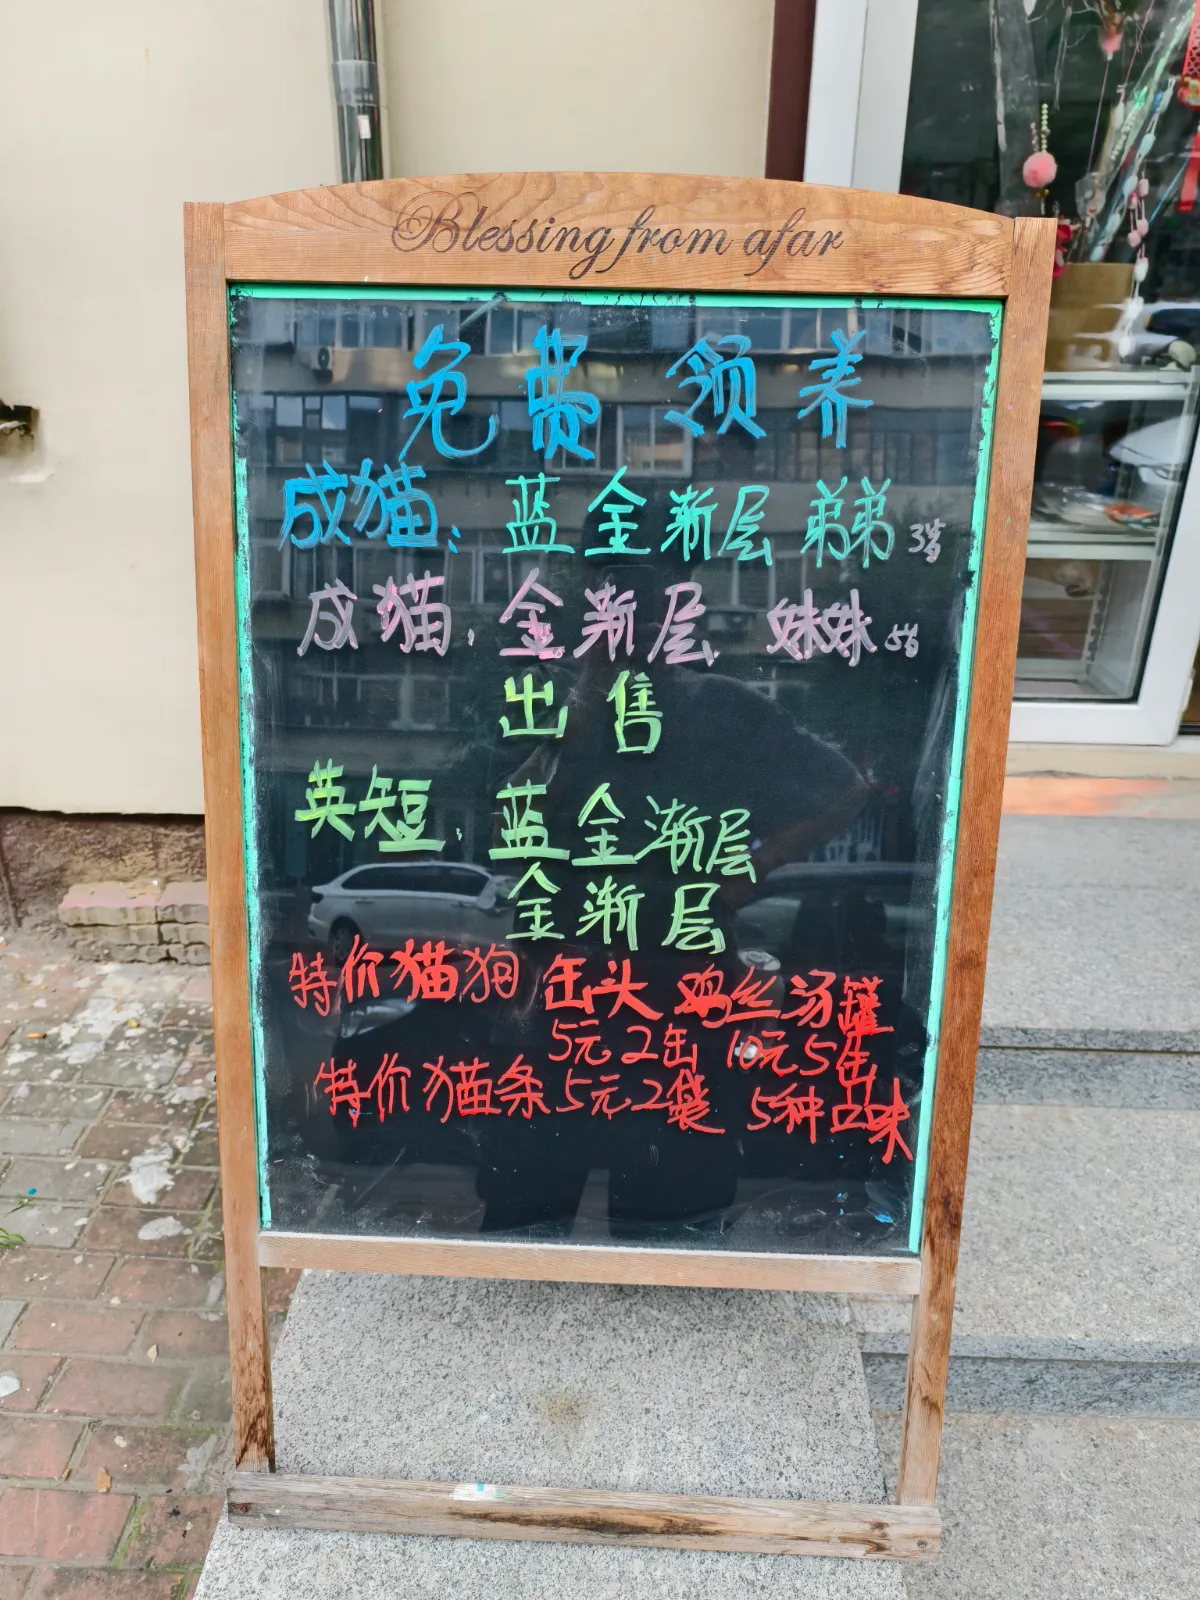 Blessing from afar
免费领养
成猫：蓝金渐层 弟弟 3岁
成猫，金渐层 妹妹 5岁
出售
英短，蓝金渐层
金渐层
特价猫狗 缶头 鸡丝汤罐
5元2缶 10元5缶
特价猫条5元2袋 5种口味